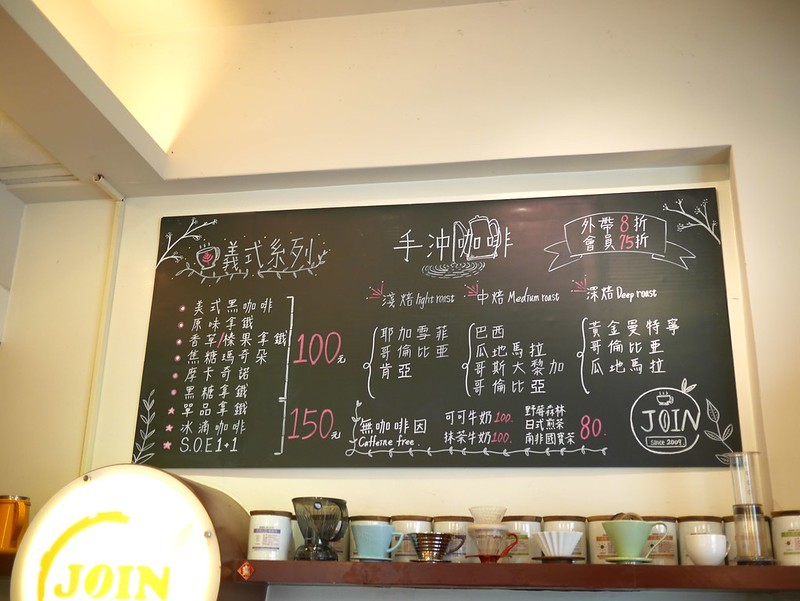 義式系列
美式黑咖啡
原味拿鐵
香草/榛果拿鐵
焦糖瑪奇朵
摩卡奇諾
黑糖拿鐵
100元
單品拿鐵
冰滴咖啡
S.O.E 1+1
150元
手沖咖啡
外帶8折
會員75折
淺焙 light roast
中焙 Medium roast
深焙 Deep roast
耶加雪菲
哥倫比亞
肯亞
巴西
瓜地馬拉
哥斯大黎加
哥倫比亞
黃金曼特寧
哥倫比亞
瓜地馬拉
無咖啡因
Caffeine free.
可可牛奶100.
抹茶牛奶100.
野莓森林
日式煎茶
南非國寶茶
80.
JOIN
Since 2009
JOIN